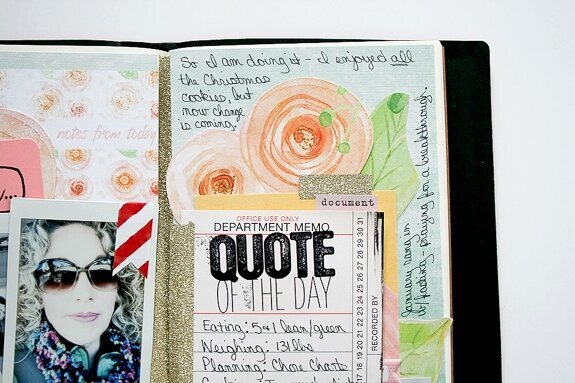 So I am doing it - I enjoyed all
the Christmas
cookies, but
now change
is coming.
notes from today
document
OFFICE USE ONLY
DEPARTMENT MEMO
QUOTE
OF THE DAY
Eating: 5+1 lean/green
Weighing: 131 lbs
Planning: Chore Charts
RECORDED BY
18 19 20 21 22 23 24 25 26 27 28 29 30 31
January hang in
praying for a breakthrough.